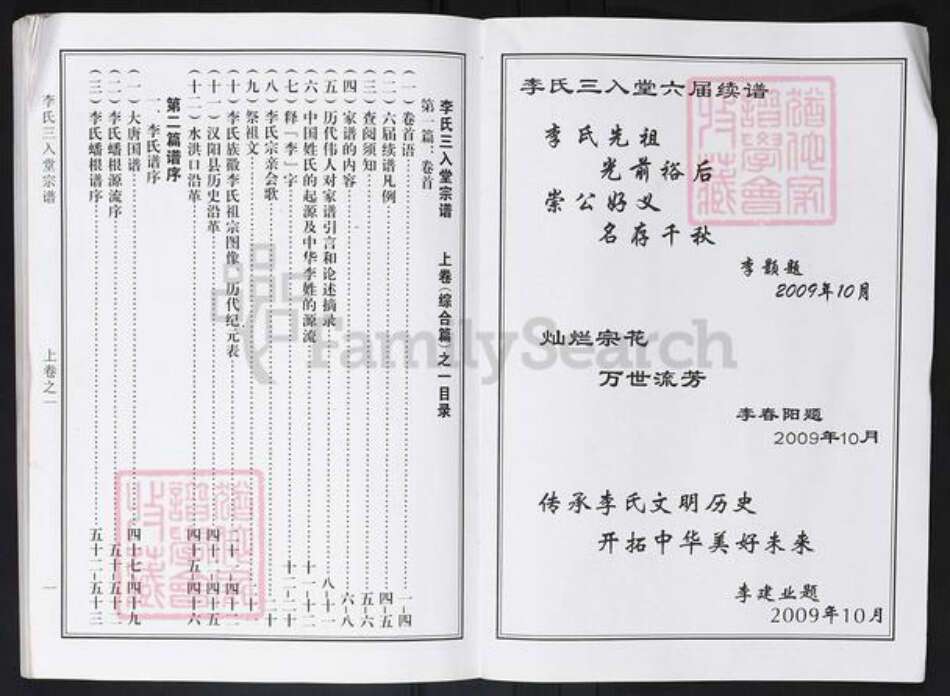 李氏三入堂六届续谱
李氏先祖
光前裕后
崇公好义
名存千秋
李颢题
2009年10月
灿烂宗花
万世流芳
李春阳题
2009年10月
传承李氏文明历史
开拓中华美好未来
李建业题
2009年10月
李氏三入堂宗谱 上卷(综合篇)之一目录
第一篇、卷首
(一)卷首语 一-四
(二)六届续谱凡例 四-五
(三)查阅须知 五-六
(四)家谱的内容 六-八
(五)历代伟人对家谱引言和论述摘录 八-十一
(六)中国姓氏的起源及中华李姓的源流 十一-十二
(七)释「李」字 十二-二十
(八)李氏宗亲会歌 二十
(九)祭祖文 二十一
(十)李氏族徽李氏祖宗图像 历代纪元表
(十一)汉阳县历史沿革 四十四-四十五
(十二)水洪口沿革 四十五-四十六
第二篇谱序
一、李氏谱序
(一)大唐国谱 四十七-四十九
(二)李氏蟠根源流序 五十-五十二
(三)李氏蟠根谱序 五十二-五十三
李氏三入堂宗谱
上卷之一
一
FamilySearch